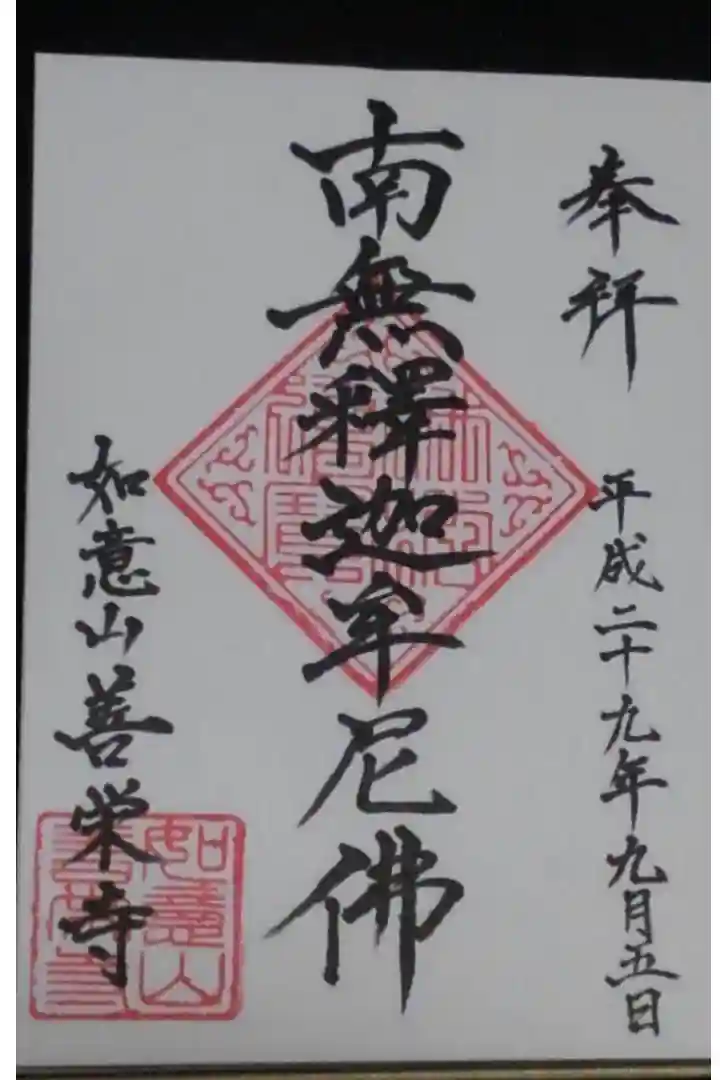 奉拝
平成二十九年九月五日
南無釋迦牟尼佛
如意山善栄寺
如意山
善栄寺